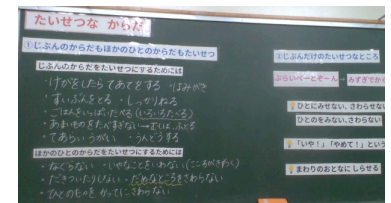 たいせつな からだ
①じぶんのからだもほかのひとのからだもたいせつ
じぶんのからだをたいせつにするためには
・けがをしたらてあてをする ・はみがき
・すいぶんをとる ・しっかりねる
・ごはんをいっぱいたべる(いろいろたべる)
・あまいものをたべすぎない→むしば、ふとる
・てあらい・うがい ・うんどうする
ほかのひとのからだをたいせつにするためには
・なぐらない ・いやなことをいわない(こころがきずつく)
・だきついたりしない ・だめなところをさわらない
・ひとのものをかってにさわらない
②じぶんだけのたいせつなところ
ぷらいべーとぞーん→みずぎでかく
ひとにみせない、さわらせない
ひとのをみない、さわらない
「いや!」「やめて!」という
まわりのおとなに しらせる